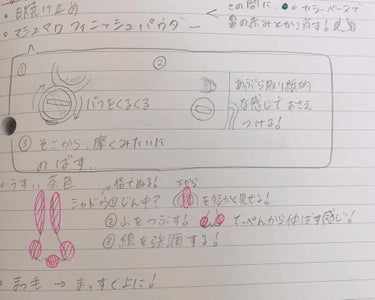 ・日焼け止め
・マシュマロフィニッシュパウダー
← この間に、●のカラーベースで
鼻の赤みとか消す!
①
パフをくるくる
②
あぶら取り紙的
な感じでおさえ
つける!
③ そこから、磨くみたいに
のばす。
・うすい茶色
指でぬる!
シャドウ① じん中?
下から
を短かく見せる!
② 山をつぶす!
てっぺんから伸ばす感じ!
③ 線を強調する!
・まつ毛 → まっすぐ上に!